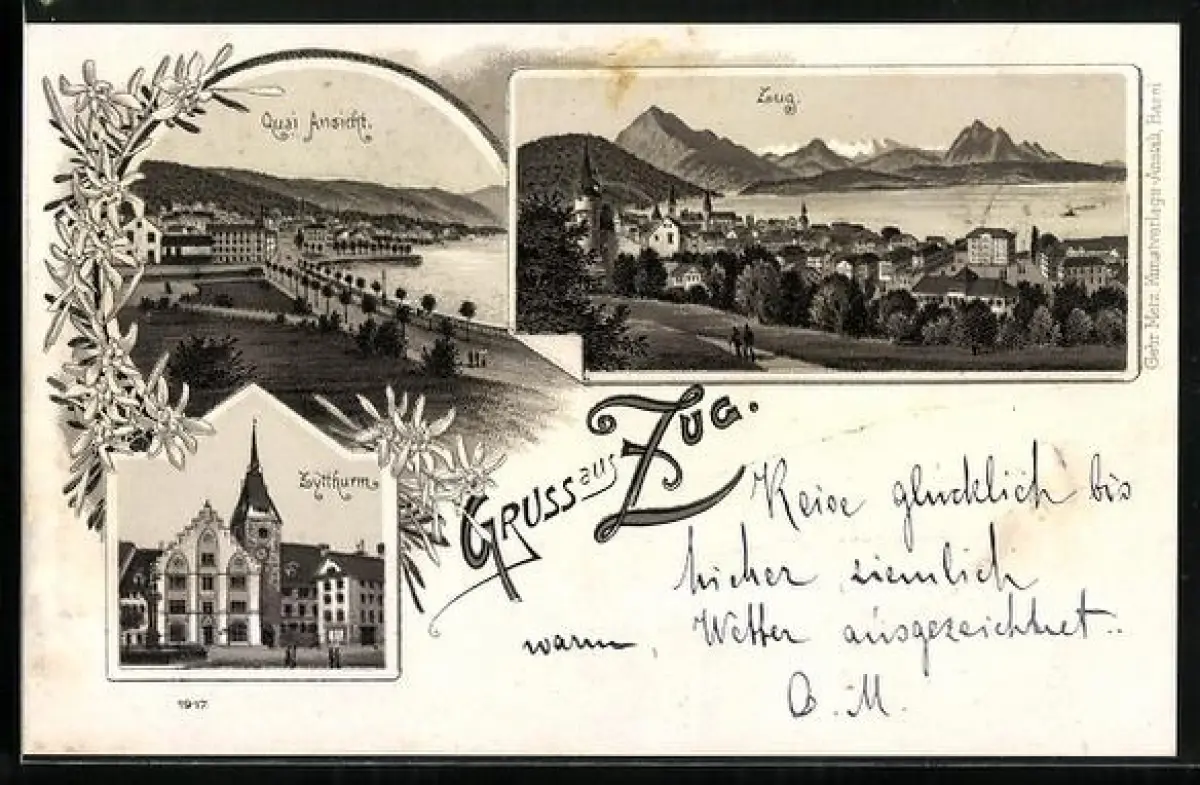 Quai Ansicht.
Zug.
Gebr. Metz, Kunstverlags-Anstalt, Basel
Zytthurm.
GRUSS aus ZUG.
Reise glücklich bis
hieher, ziemlich
warm, Wetter ausgezeichnet..
O. M.
1917